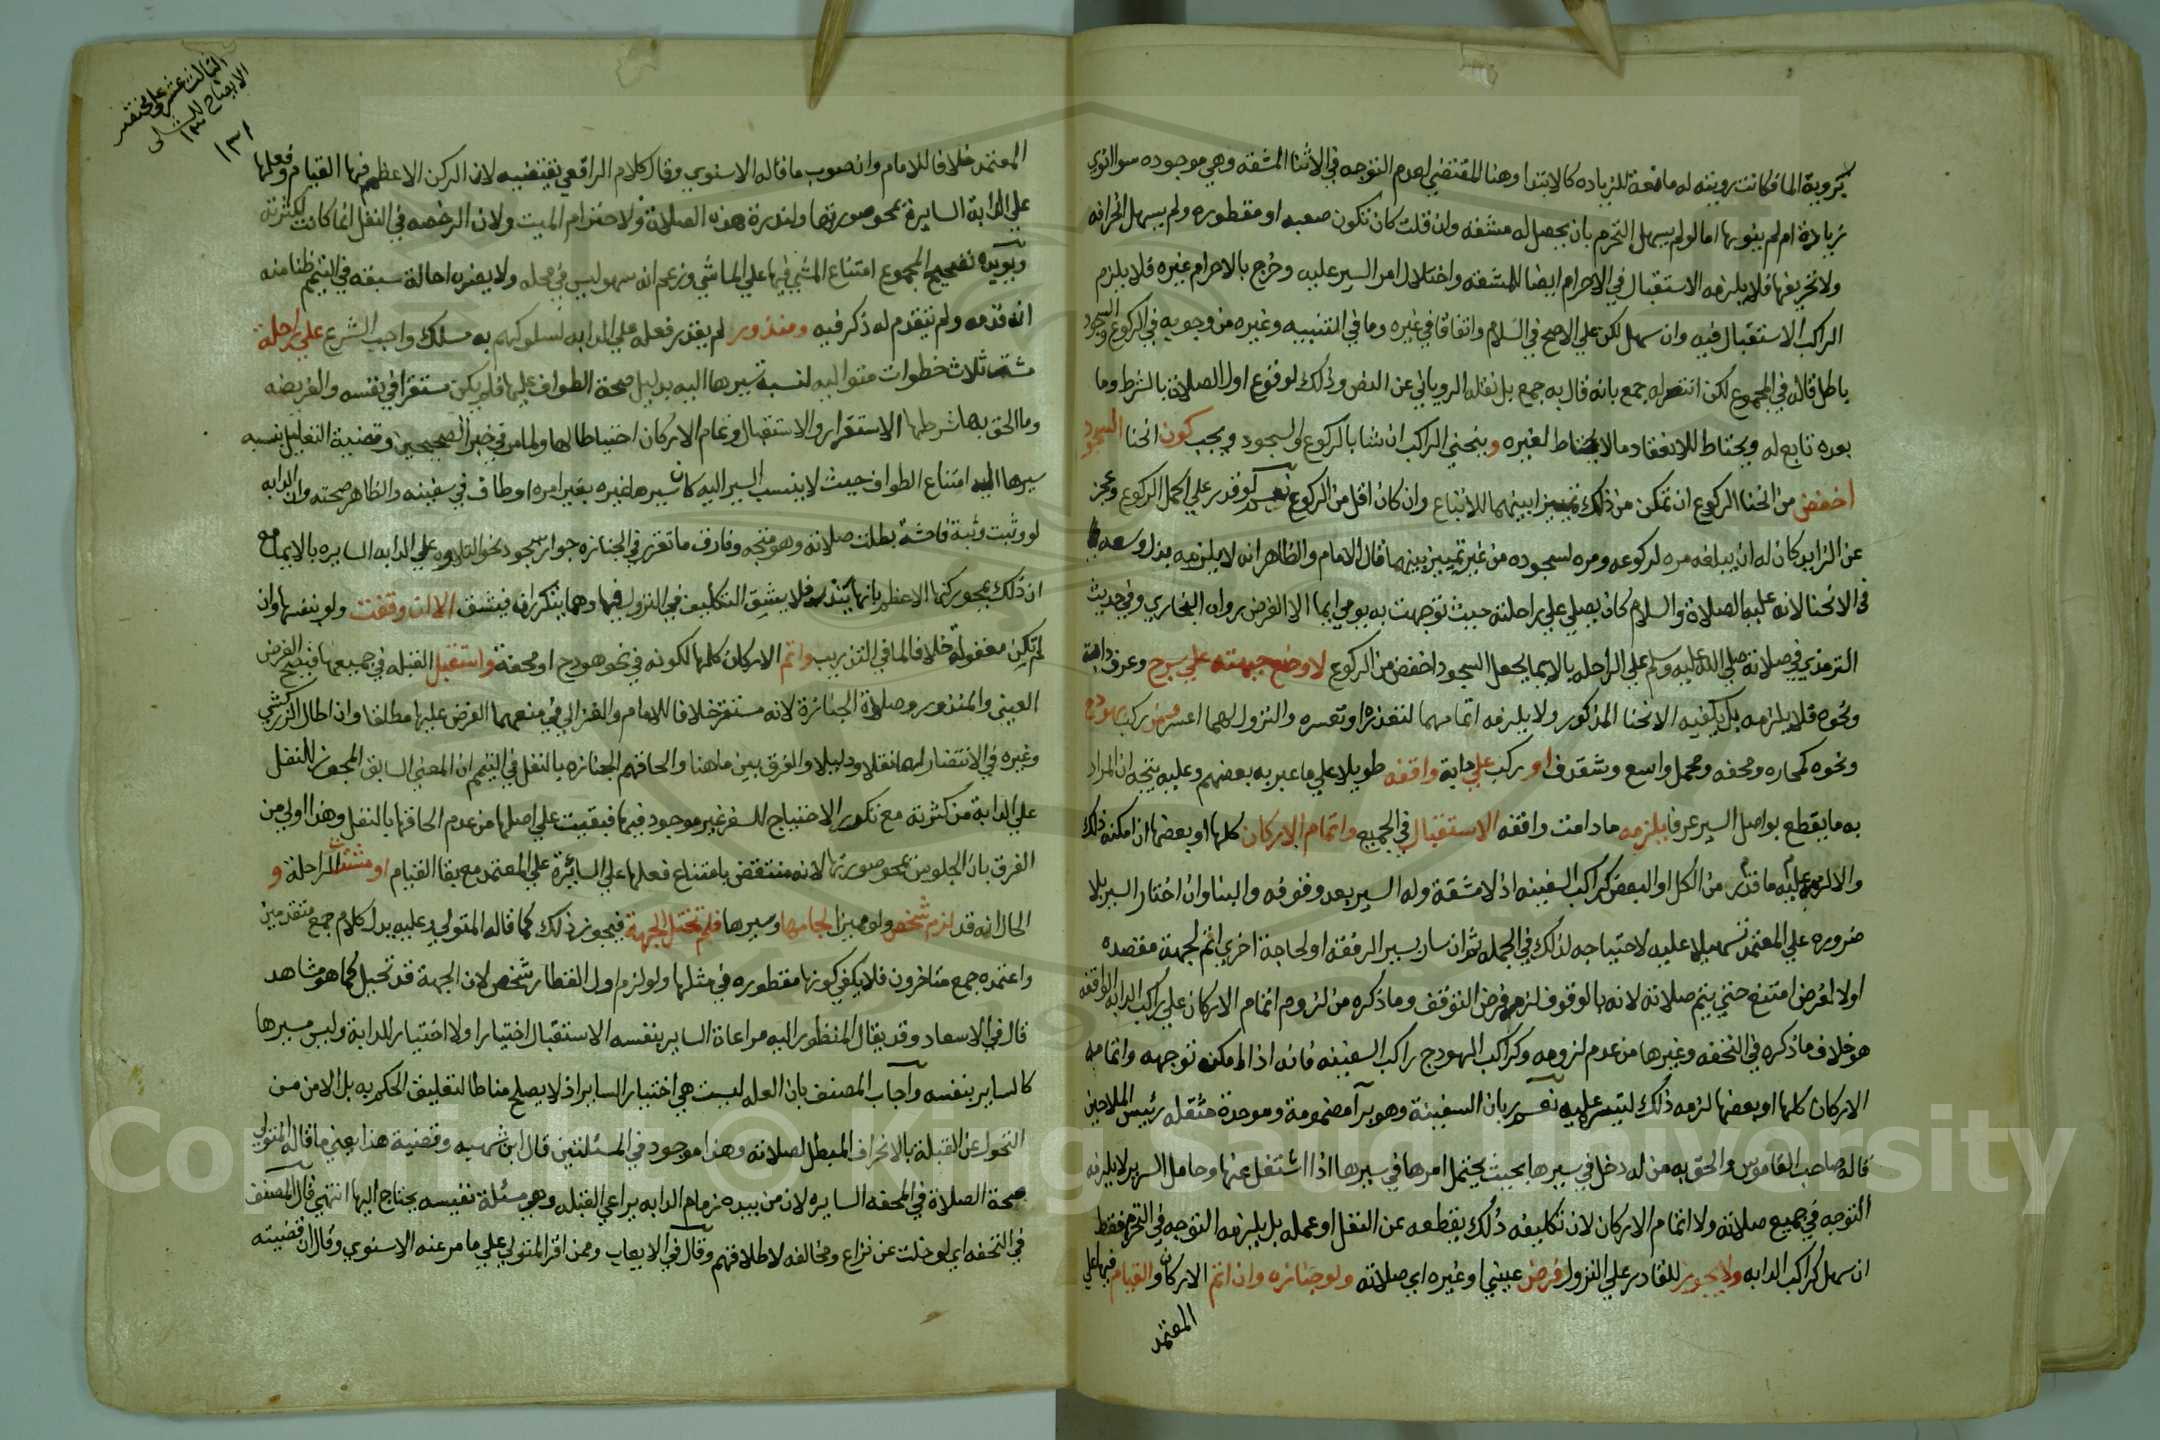 كروية الما فكانت رويته له مانعة للزياده كالابتدا وهنا المقتضي لعدم التوجه في الاثنا المشقه وهي موجوده سوا انوي
زيادة ام لم ينويها امالو لم يسهل التحرم بان يحصل له مشقه وان قلت كان تكون صعبه او مقطوره ولم يسهل انحرافه
ولا تحريفها فلا يلزمه الاستقبال في الاحرام ايضا للمشقه واختلال امر السير عليه وخرج بالاحرام غيره فلا يلزم
الراكب الاستقبال فيه وان سهل لكن علي الاصح في السلام واتفاقا في غيره وما في التنبيه وغيره من وجوبه في الركوع والسجود
باطل قاله في المجموع لكن انتصر له جمع بانه قال به جمع بل نقله الروياني عن النص وذلك لوقوع اول الصلاة بالشرط وما
بعده تابع له ويحتاط للانعقاد مالا يحتاط لغيره وينحني الراكب ان شا بالركوع والسجود ويجب كون انحنا السجود
اخفض من انحنا الركوع ان تمكن من ذلك تمييزا بينهما للاتباع وان كان اقل من الركوع نعم لو قدر علي اكمل الركوع وعجز
عن الزايد كان له ان يبلغه مره لركوعه ومره لسجوده من غير تمييز بينهما قال الامام والظاهر انه لا يلزمه بذل وسعه
في الانحنا لانه عليه الصلاة والسلام كان يصلي علي راحلته حيث توجهت به يومي ايما الا الفرض رواه البخاري وفي حديث
الترمذي في صلاته صلي الله عليه وسلم علي الراحله بالايما يجعل السجود اخفض من الركوع لا وضع جبهته علي سرج وعرف دابته
ونحوه فلا يلزمه بل يكفيه الانحنا المذكور ولا يلزمه اتمامهما لتعذره او تعسره والنزول لهما اعسر ومن ركب بهودج
ونحوه كمحاره ومحفه ومحمل واسع وشقدف او ركب علي دابة واقفه طويلا علي ما عبر به بعضهم وعليه يتجه ان المراد
به ما يقطع بواصل السير عرفا يلزمه ما دامت واقفه الاستقبال في الجميع واتمام الاركان كلها او بعضها ان امكنه ذلك
والا لزم عليه ما قدر من الكل او البعض كراكب السفينه اذ لا مشقة وله السير بعد وقوفه والبنا وان اختار السير بلا
ضروره علي المعتمد تسهيلا عليه لاحتياجه لذلك في الجمله ثم ان سار بسير الرفقه او لحاجة اخري اتم لجهة مقصده
اولا لغرض امتنع حتي يتم صلاته لانه بالوقوف لزمه فرض التوقف وما ذكره من لزوم اتمام الاركان علي راكب الدابه الواقفه
هو خلاف ما ذكره في التحفه وغيرها من عدم لزومه وكراكب الهودج راكب السفينه فانه اذا امكنه توجهه واتمامه
الاركان كلها او بعضها لزمه ذلك لتيسره عليه نعم ربان السفينة وهو برآ مضمومة وموحدة مثقله رئيس الملاحين
قاله صاحب القاموس والحق به من له دخل في سيرها بحيث يختل امرها في سيرها اذا اشتغل عنها وحامل السرير لا يلزمه
التوجه في جميع صلاته ولا اتمام الاركان لان تكليفه ذلك يقطعه عن النفل او عمله بل يلزمه التوجه في التحرم فقط
ان سهل كراكب الدابه ولا يجوز للقادر علي النزول فرض عيني او غيره اي صلاته ولو جنازه وان اتم الاركان والقيام فيها علي
المعتمد
الثالث عشر علي مختصر
الايضاح
١٣١
المعتمد خلافا للامام وان صوب ما قاله الاسنوي وقال كلام الرافعي يقتضيه لان الركن الاعظم فيها القيام وفعلها
علي الدابة السايرة يمحو صورتها ولندرة هذه الصلاة ولاحترام الميت ولان الرخصه في النفل انما كانت لكثرته
ويويده تصحيح المجموع امتناع المشي فيها علي الماشي وزعم انه سهو ليس في محله ولا يضره احالة سبقه في التيمم ظنا منه
انه قدمه ولم يتقدم له ذكر فيه ومنذور لم يقدر فعله علي الدابه لسلوكهم به مسلك واجب الشرع علي راحلة
مشت ثلاث خطوات متواليه لنسبة سيرها اليه بدليل صحة الطواف عليها فلم يكن مستقرا في نفسه والفريضه
وما الحق بها شرطها الاستقرار والاستقبال وتمام الاركان احتياطا لها ولما مر في خبر الصحيحين وقضية التعليل بنسبه
سيرها اليه امتناع الطواف حيث لا ينسب السير اليه كان سيرها غيره بغير امره او طاف في سفينه والظاهر صحته وان الدابه
لو وثبت وثبة فاحشة بطلت صلاته وهو متجه وفارق ما تقرر في الجنازه جواز سجود نحو التلاوه علي الدابه السايره بالايما مع
ان ذلك يمحو ركنها الاعظم بانها تندر فلا يشق التكليف في النزول فيها وهما يتكرران فيشق الا ان وقفت ولو بنفسها وان
لم تكن معقولة خلافا لما في التدريب واتم الاركان كلها لكونه في نحو هودج او محفة واستقبل القبله في جميعها فيصح الفرض
العيني والمنذور وصلاة الجنازة لانه مستقر خلافا للامام والغزالي في منعهما الفرض عليها مطلقا وان اطال الزركشي
وغيره في الانتصار لهما نقلا ودليلا والفرق بين ما هنا والحاقهم الجنازه بالنفل في التيمم ان المعني السابق المجوز للنفل
علي الدابة من كثرته مع تكرر الاحتياج للسفر غير موجود فيها فبقيت علي اصلها من عدم الحاقها بالنفل وهذا اولي من
الفرق بان الجلوس يمحو صورتها لانه منتقض بامتناع فعلها علي السائرة علي المعتمد مع بقا القيام او مشت الراحلة و
الحال انه قد لزم شخص ولو مميزا لجامها وسيرها فلم تختل الجهة فيجوز ذلك كما قاله المتولي وعليه يدل كلام جمع متقدمين
واعتمده جمع متاخرون فلا يكفي كونها مقطوره في مثلها ولو لزم اول القطار شخص لان الجهة قد تختل كما هو مشاهد
قال في الاسعاد وقد يقال المنظور اليه مراعاة الساير بنفسه الاستقبال اختيارا ولا اختيار للدابة وليس مسيرها
كالساير بنفسه واجاب المصنف بان العله ليست هي اختيار الساير اذ لا يصلح مناطا لتعليق الحكم به بل الامن من
التحول عن القبلة بالانحراف المبطل لصلاته وهذا موجود في المسئلتين قال ابن شهبه وقضية هذا يعني ما قاله المتولي
صحة الصلاة في المحفه السايره لان من بيده زمام الدابه يراعي القبله وهو مسئلة نفيسه يحتاج اليها انتهي قال المصنف
في التحفه اي لو خلت عن نزاع ومخالفه لاطلاقهم وقال في الايعاب وممن اقر المتولي علي ما مر عنه الاسنوي وقال ان قضيته